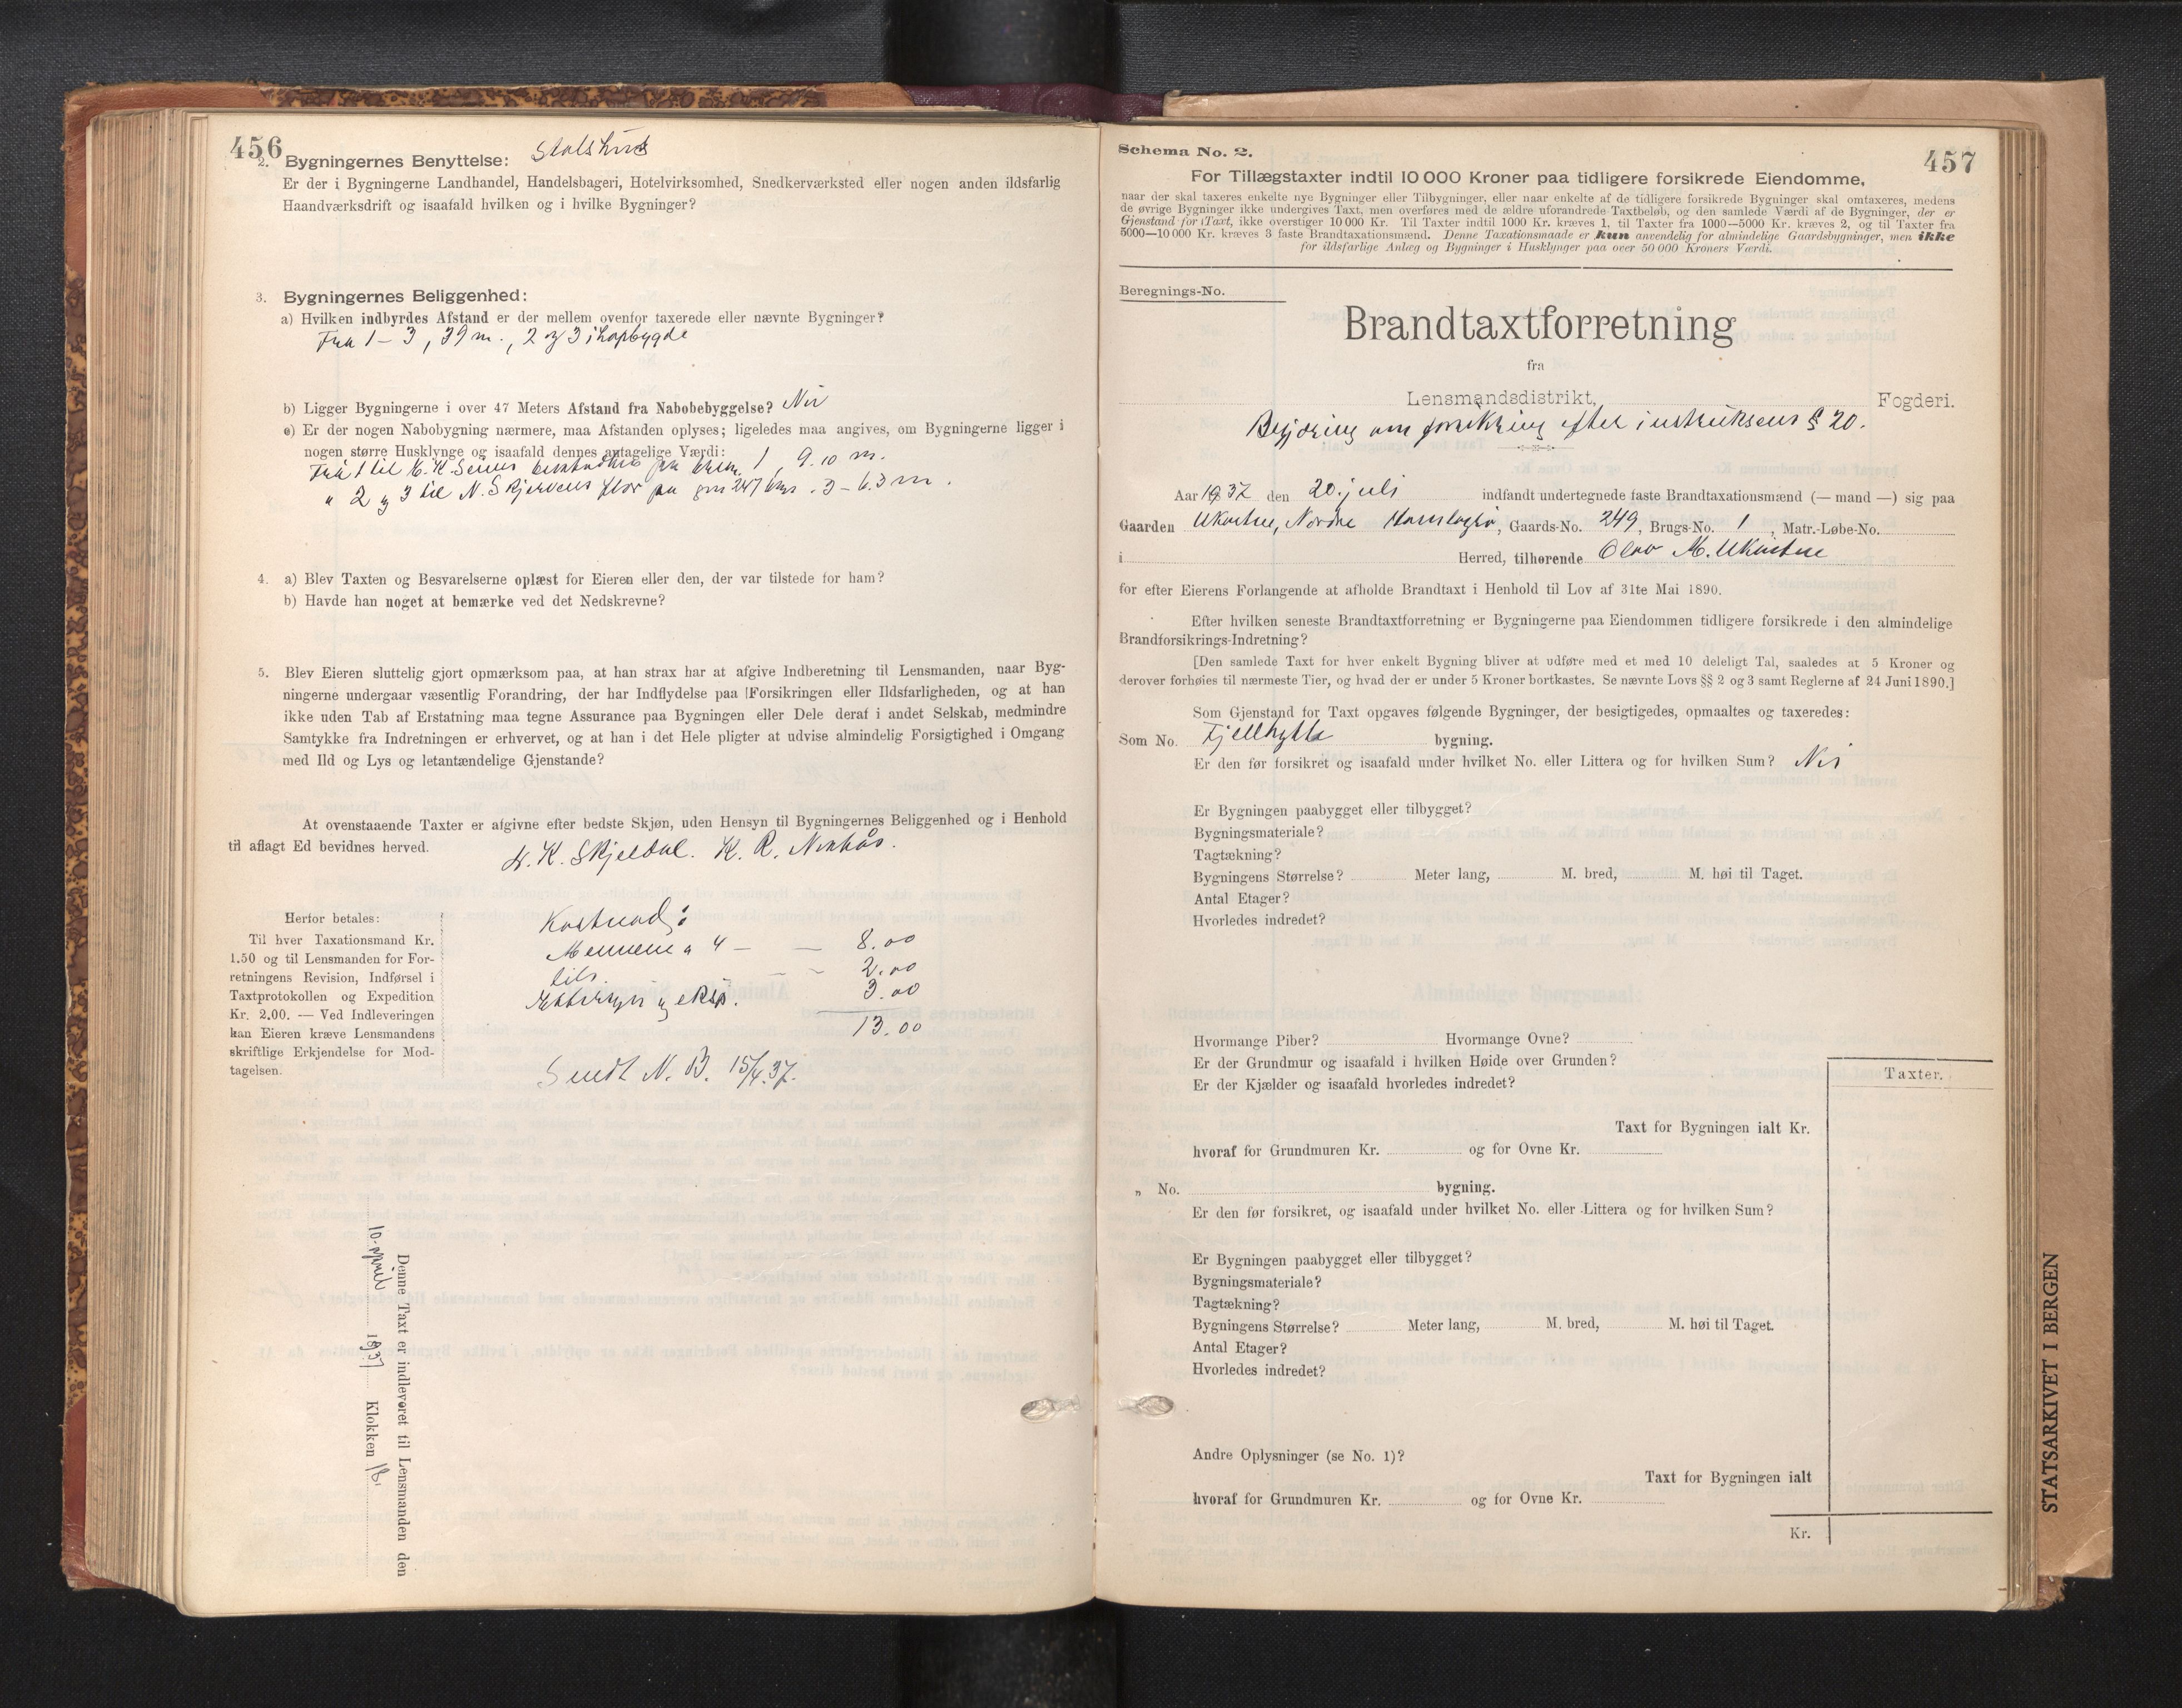 456
2. Bygningernes Benyttelse: Stølshus
Er der i Bygningerne Landhandel, Handelsbageri, Hotelvirksomhed, Snedkerværksted eller nogen anden ildsfarlig
Haandværksdrift og isaafald hvilken og i hvilke Bygninger?
3. Bygningernes Beliggenhed:
a) Hvilken indbyrdes Afstand er der mellem ovenfor taxerede eller nævnte Bygninger?
Fra 1 – 3, 39 m., 2 og 3 ihopbygde
b) Ligger Bygningerne i over 47 Meters Afstand fra Nabobebyggelse? Nei
c) Er der nogen Nabobygning nærmere, maa Afstanden oplyses; ligeledes maa angives, om Bygningerne ligger i
nogen større Husklynge og isaafald dennes antagelige Værdi:
Frå 1 til K. K. 1, 9.10 m.
" 2 og 3 til N. Skjervens flor på gnr 247 bnr. 3 – 6.3 m.
4. a) Blev Taxten og Besvarelserne oplæst for Eieren eller den, der var tilstede for ham?
b) Havde han noget at bemærke ved det Nedskrevne?
5. Blev Eieren sluttelig gjort opmærksom paa, at han strax har at afgive Indberetning til Lensmanden, naar Byg-
ningerne undergaar væsentlig Forandring, der har Indflydelse paa Forsikringen eller Ildsfarligheden, og at han
ikke uden Tab af Erstatning maa tegne Assurance paa Bygningen eller Dele deraf i andet Selskab, medmindre
Samtykke fra Indretningen er erhvervet, og at han i det Hele pligter at udvise almindelig Forsigtighed i Omgang
med Ild og Lys og letantændelige Gjenstande?
At ovenstaaende Taxter er afgivne efter bedste Skjøn, uden Hensyn til Bygningernes Beliggenhed og i Henhold
til aflagt Ed bevidnes herved.
K. Skjeldal. K. R.
Herfor betales:
Til hver Taxationsmand Kr.
1.50 og til Lensmanden for For-
retningens Revision, Indførsel i
Taxtprotokollen og Expedition
Kr. 2.00. — Ved Indleveringen
kan Eieren kræve Lensmandens
skriftlige Erkjendelse for Mod-
tagelsen.
Kostnad:
Mennene a 4 — — 8.00
2.00
Ettersyn og eksp. 3.00
13.00
Sendt N. B. 15/4.37.
Denne Taxt er indleveret til Lensmanden den
10. april 1937 Klokken 18.
Schema No. 2.
457
For Tillægstaxter indtil 10 000 Kroner paa tidligere forsikrede Eiendomme,
naar der skal taxeres enkelte nye Bygninger eller Tilbygninger, eller naar enkelte af de tidligere forsikrede Bygninger skal omtaxeres, medens
de øvrige Bygninger ikke undergives Taxt, men overføres med de ældre uforandrede Taxtbeløb, og den samlede Værdi af de Bygninger, der er
Gjenstand for Taxt, ikke overstiger 10 000 Kr. Til Taxter indtil 1000 Kr. kræves 1, til Taxter fra 1000—5000 Kr. kræves 2, og til Taxter fra
5000—10 000 Kr. kræves 3 faste Brandtaxationsmænd. Denne Taxationsmaade er kun anvendelig for almindelige Gaardsbygninger, men ikke
for ildsfarlige Anlæg og Bygninger i Husklynger paa over 50 000 Kroners Værdi.
Beregnings-No.
Brandtaxtforretning
fra
Lensmandsdistrikt, Fogderi.
Begjæring om forsikring efter instruksens § 20.
Aar 1937 den 20. juli indfandt undertegnede faste Brandtaxationsmænd (— mand —) sig paa
Gaarden Ukvitne, Nordre Hamlagrø, Gaards-No. 249, Brugs-No. 1, Matr.-Løbe-No.
i Herred, tilhørende Olav M. Ukvitne
for efter Eierens Forlangende at afholde Brandtaxt i Henhold til Lov af 31te Mai 1890.
Efter hvilken seneste Brandtaxtforretning er Bygningerne paa Eiendommen tidligere forsikrede i den almindelige
Brandforsikrings-Indretning?
[Den samlede Taxt for hver enkelt Bygning bliver at udføre med et med 10 deleligt Tal, saaledes at 5 Kroner og
derover forhøies til nærmeste Tier, og hvad der er under 5 Kroner bortkastes. Se nævnte Lovs §§ 2 og 3 samt Reglerne af 24 Juni 1890.]
Som Gjenstand for Taxt opgaves følgende Bygninger, der besigtigedes, opmaaltes og taxeredes:
Som No. Fjellhytte bygning.
Er den før forsikret og isaafald under hvilket No. eller Littera og for hvilken Sum? Nei
Er Bygningen paabygget eller tilbygget?
Bygningsmateriale?
Tagtækning?
Bygningens Størrelse? Meter lang, M. bred, M. høi til Taget.
Antal Etager?
Hvorledes indredet?
Hvormange Piber? Hvormange Ovne?
Er der Grundmur og isaafald i hvilken Høide over Grunden?
Er der Kjælder og isaafald hvorledes indredet?
Taxter.
Taxt for Bygningen ialt Kr.
hvoraf for Grundmuren Kr. og for Ovne Kr.
„ No. bygning.
Er den før forsikret, og isaafald under hvilket No. eller Littera og for hvilken Sum?
Er Bygningen paabygget eller tilbygget?
Bygningsmateriale?
Tagtækning?
Bygningens Størrelse? Meter lang, M. bred, M. høi til Taget.
Antal Etager?
Hvorledes indredet?
Andre Oplysninger (se No. 1)?
Taxt for Bygningen ialt
hvoraf for Grundmuren Kr. og for Ovne Kr.
Kr.
STATSARKIVET I BERGEN